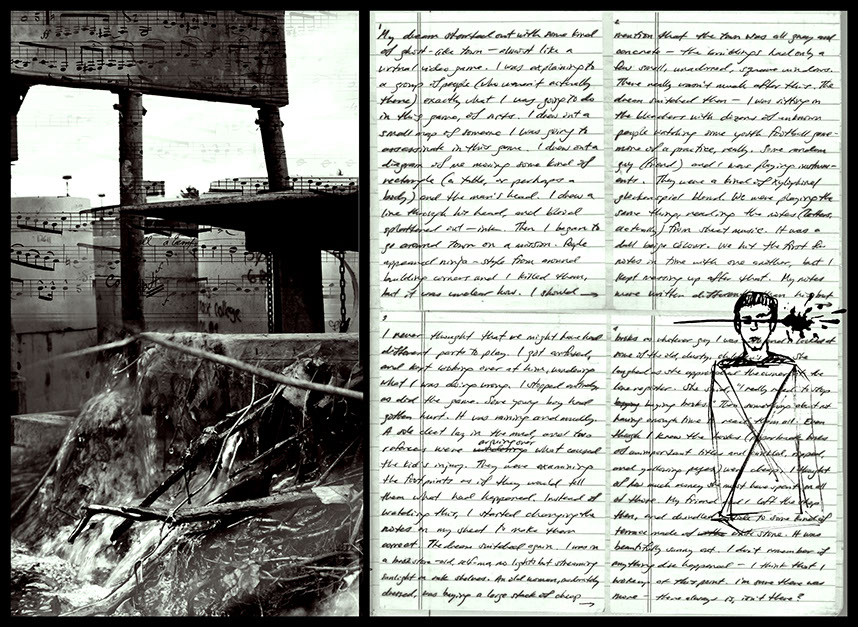 College
1
My dream started out with some kind
of ghost-like town - almost like a
virtual video game. I was explaining to
a group of people (who weren't actually
there) exactly what I was going to do
in this game, of sorts. I drew out a
small map of someone I was going to
assassinate in this game. I drew out a
diagram of me moving some kind of
rectangle (a table, or perhaps a
body) and the man's head. I drew a
line through his head, and blood
splattered out - ink. Then I began to
go around town on a mission. People
appeared ninja-style from around
building corners and I killed them,
but it was unclear how. I should →
2
mention that the town was all gray and
concrete - the buildings had only a
few small, unadorned, square windows.
There really wasn't much after this. The
dream switched then - I was sitting in
the bleachers with dozens of unknown
people watching some youth football game
more of a practice, really. Some random
guy (friend) and I were playing instrum-
ents. They were a kind of xylophone/
glockenspiel blend. We were playing the
same thing, reading the notes (letters,
actually) from sheet music. It was a
dull beige colour. We hit the first few
notes in time with one another, but I
kept messing up after that. My notes
were written different than his, but
3
I never thought that we might have had
different parts to play. I got confused,
and kept looking over at him, wondering
what I was doing wrong. I stopped entirely
as did the game. Some young boy had
gotten hurt. It was raining and muddy.
A sole cleat lay in the mud, and two
referees were arguing over what caused
the kid's injury. They were examining
the footprints as if they would tell
them what had happened. Instead of
watching this, I started changing the
notes on my sheet to make them
correct. The dream switched again. I was in
a book store - old setting, no lights but streaming
sunlight on oak shelves. An old woman,
dressed, was buying a large stack of cheap →
4
books as whatever guy I was
some of the old, dusty, children's
laughed as she approached the owner
the register. She said, "I really to stop
buying books." Then something about not
having enough time to read them all. Even
though I knew the books (paperback books
of unimportant titles and ripped,
and yellowing pages) were cheap, I thought
of how much money she must have spent on all
of those. My friend and I left the
then, and to some kind of
terrace made of stone. It was
beautifully sunny out. I don't remember if
anything else happened - I think that I
woke up at this point. I'm sure there was
more - there always is, isn't there?